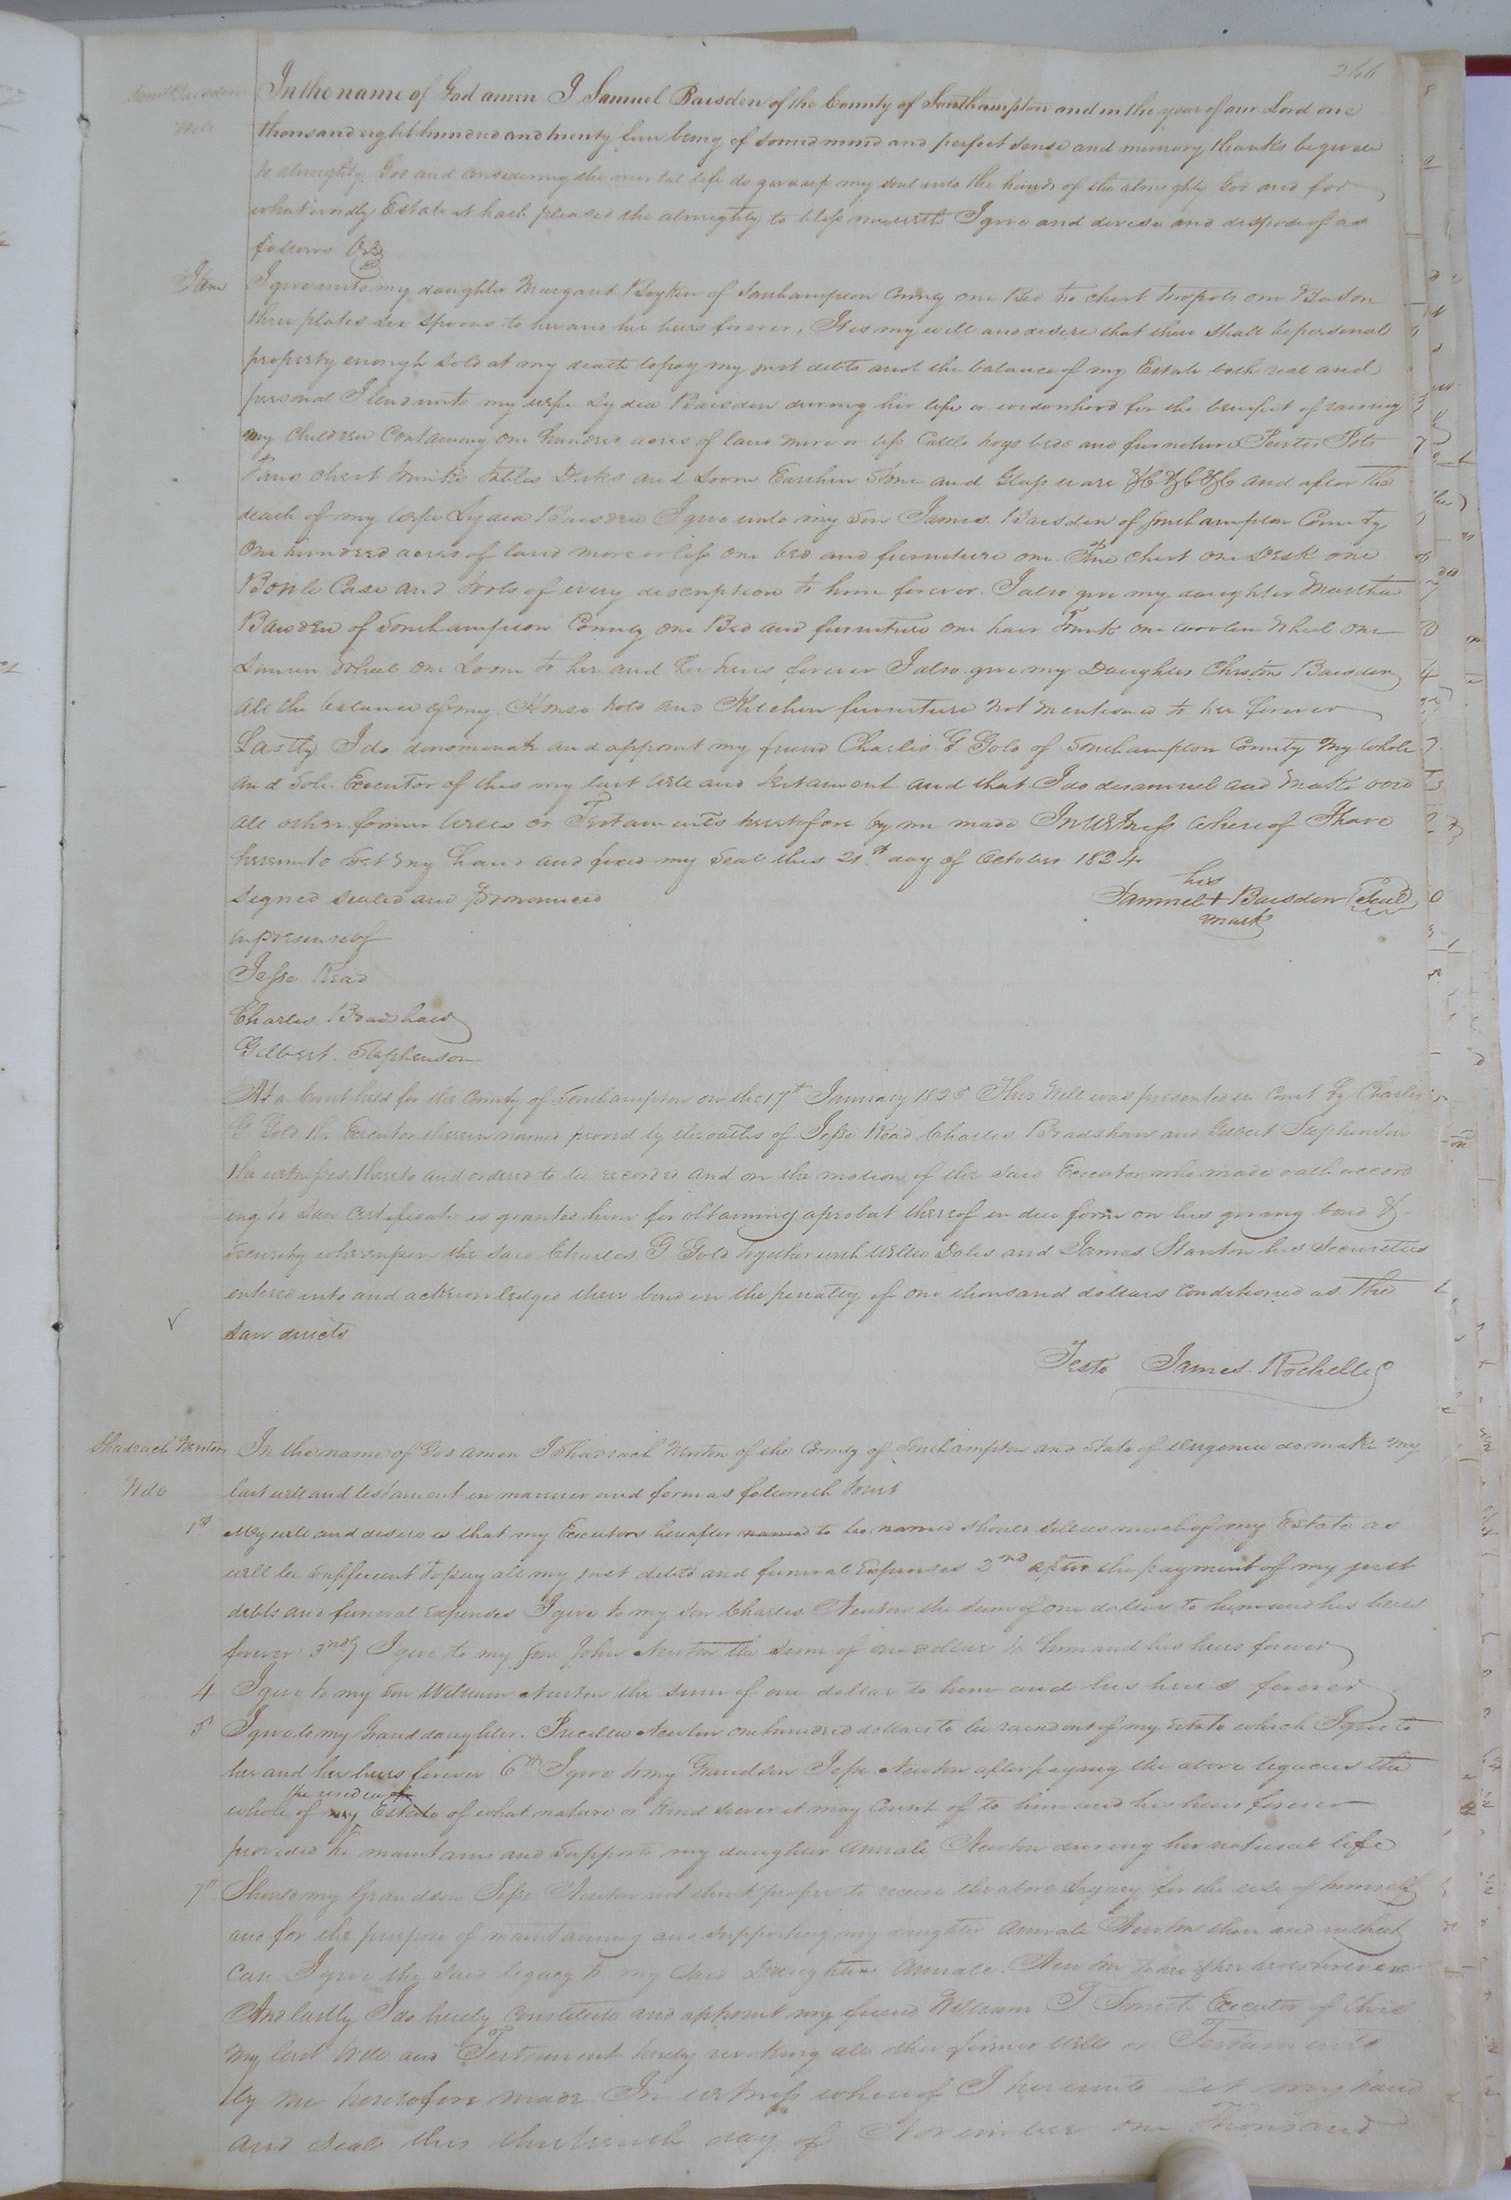 266
Saml Baisden In the name of God amen I Samuel Baisden of the County of Southampton and in the year of our Lord one
Will thousand eight hundred and twenty four being of sound mind and perfect sense and memory thanks be given
to almighty God and considering the mortal life do give up my soul into the hands of the almighty God and for
what wordly Estate it hath pleased the almighty to bless me with I give and devise and dispose of as
follows Viz
Item I give unto my daughter Margaret Boykin of Southampton County one Bed one chest two pots one Bason
three plates six spoons to her and her heirs forever, It is my will and desire that there shall be personal
property enough sold at my death to pay my just debts and the balance of my Estate both real and
personal I lend unto my wife Lydia Baisden during her life or widowhood for the benefit of raising
my children Containing one hundred acres of land more or less Cattle hogs beds and furniture Pewter Pots
Pans chest trunks tables Desks and Loom Earthen Stone and Glass ware &C &C &C and after the
death of my wife Lydia Baisden I give unto my Son James Baisden of Southampton County
One hundred acres of land more or less one bed and furniture one Pine chest one Desk one
Bottle Case and tools of every description to him forever. I also give my daughter Martha
Baisden of Southampton County one Bed and furniture one hair Trunk one woolen Wheel one
Linnen Wheel one Loom to her and her heirs forever I also give my Daughter Christon Baisden
All the balance of my House hold and Kitchen furniture not mentioned to her forever
Lastly I do denominate and appoint my friend Charles G Gold of Southampton County my whole
and Sole Executor of this my last will and testament and that I do disannul and make void
all other former Wills or Testaments heretofore by me made In Witness whereof I have
hereunto set my hand and fixed my Seal this 21st day of October 1824
Signed sealed and pronounced his
Samuel + Baisden (Seal)
mark
in presence of
Jesse Read
Charles Bradshaw
Gilbert Stephenson
At a Court held for the County of Southampton on the 17th January 1825 This Will was presented in Court by Charles
G Gold the Executor therein named proved by the oaths of Jesse Read Charles Bradshaw and Gilbert Stephenson
the witnesses thereto and ordered to be recorded and on the motion of the said Executor who made oath accord
ing to Law Certificate is granted him for obtaining a probat thereof in due form on his giving bond &
Security whereupon the said Charles G Gold together with Willie Doles and James Stanton his Securities
entered into and acknowledged their bond in the penalty of one thousand dollars Conditioned as the
Law directs
Teste James Rochelle
Shadrach Newton In the name of God amen I Shadrach Newton of the County of Southampton and State of Virginia do make my
Will last will and testament in manner and form as followeth to wit
1st My will and desire is that my Executors hereafter named to be named should sell as much of my Estate as
will be sufficient to pay all my just debts and funeral Expenses 2nd after the payment of my just
debts and funeral expenses I give to my son Charles Newton the sum of one dollar to him and his heirs
forever 3rdly I give to my son John Newton the sum of one dollar to him and his heirs forever
4 I give to my son William Newton the sum of one dollar to him and his heirs forever
5 I give to my Grand daughter Pricilla Newton one hundred dollars to be raised out of my Estate which I give to
her and her heirs forever 6th I give to my Grandson Jesse Newton after paying the above legacies the
the residue of
whole of my Estate of what nature or kind soever it may Consist of to him and his heirs forever
provided he maintains and supports my daughter Annale Newton during her natural life
7th Should my Grandson Jesse Newton not think proper to receive the above Legacy for the use of himself
and for the purpose of maintaining and supporting my daughter Annale Newton then and in that
Case I give the said legacy to my said Daughter Annale Newton to her & her heirs forever
And lastly I do hereby Constitute and appoint my friend William T Smith Executor of this
my last Will and Testament hereby revoking all other former Wills or Testaments
by me heretofore made In witness whereof I hereunto set my hand
and seal this thirteenth day of November one Thousand